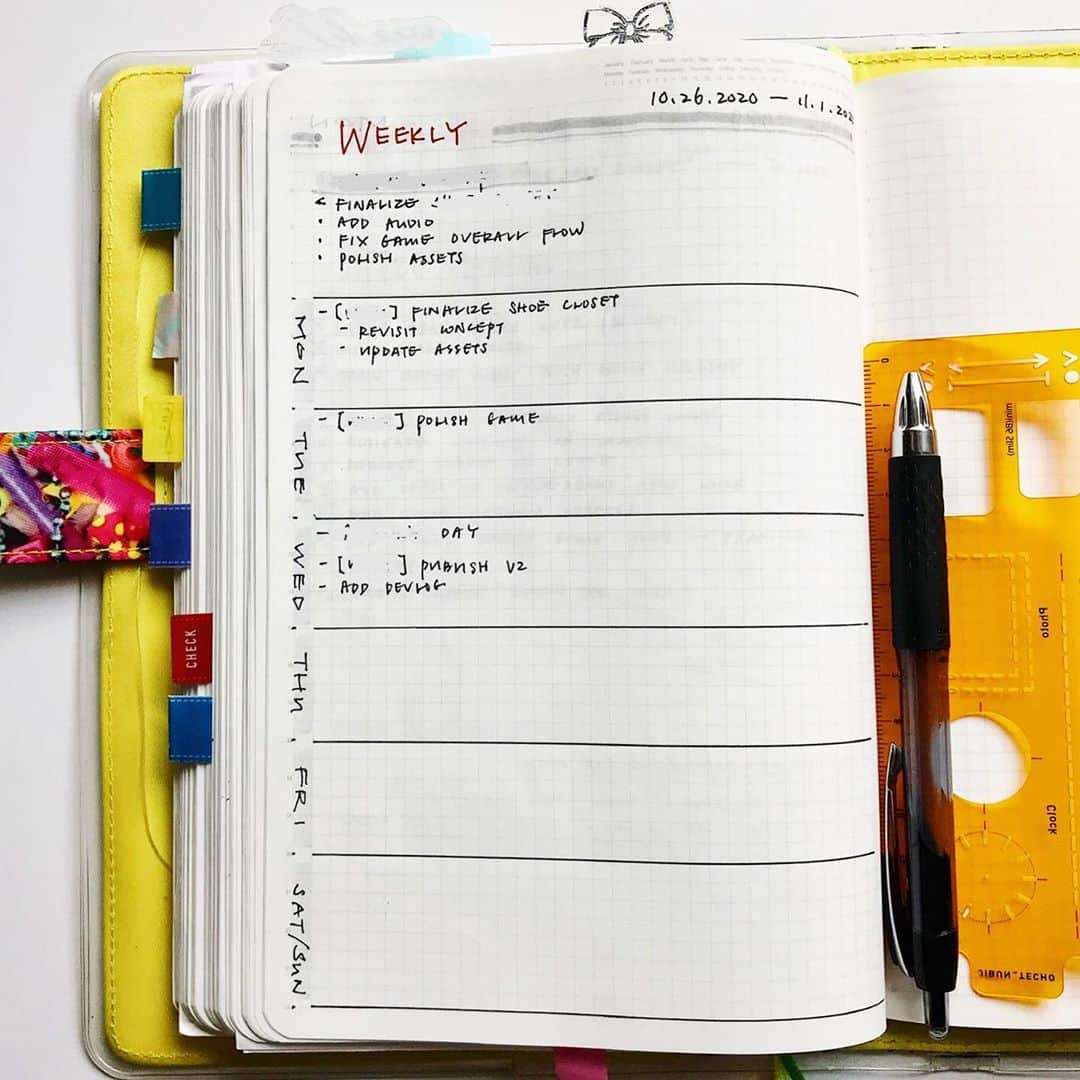 10.26.2020 — 11.1.202
WEEKLY
< FINALIZE
· ADD AUDIO
· FIX GAME OVERALL FLOW
· POLISH ASSETS
MON
- [ ] FINALIZE SHOE CLOSET
- REVISIT CONCEPT
- UPDATE ASSETS
TUE
- [ ] POLISH GAME
WED
- DAY
- [ ] PUBLISH V2
- ADD DEVLOG
THU
FRI
SAT/SUN
CHECK
mini(B6 Slim)
Photo
Clock
JIBUN_TECHO
0